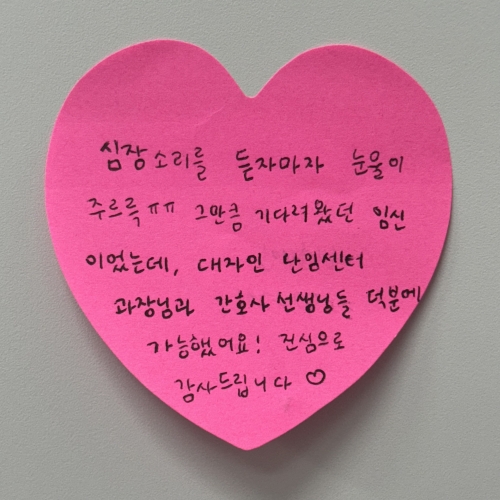 심장소리를 듣자마자 눈물이
주르륵ㅠㅠ 그만큼 기다려왔던 임신
이었는데, 대자인 난임센터
과장님과 간호사 선생님들 덕분에
가능했어요! 진심으로
감사드립니다 ♡